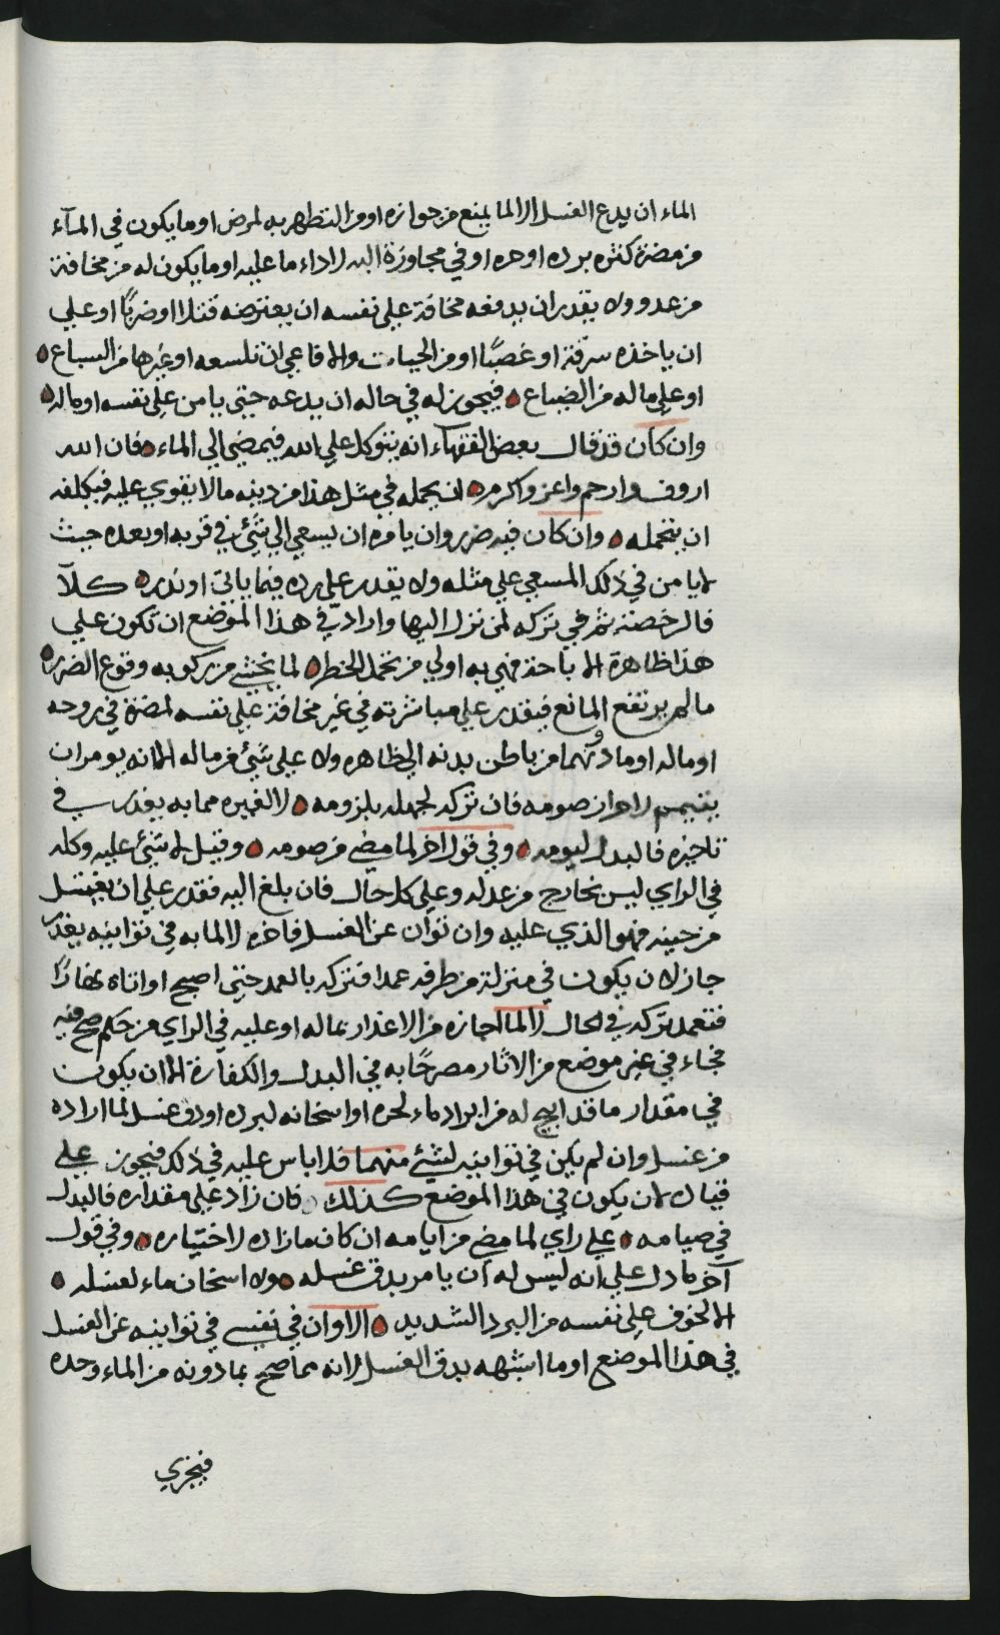 الماء ان يدع الغسل الا لما يمنع من جوازه او من التطهر به لمرض او ما يكون في المآء
من مضرة كثرة برده او حره او في مجاوزة اليه لاداء ما عليه او ما يكون له من مخافة
من عدو ولا يقدر ان يدفعه مخافة على نفسه ان يعترضه قتلا او ضربًا او على
ان ياخذه سرقة او غصبًا او من الحيات والافاعي ان تلسعه او غيرها من السباع
او على ماله من الضياع فيجوز له في حاله ان يدعه حتى يامن على نفسه او ماله
وان كان قد قال بعض الفقهآء انه يتوكل على الله فيمضي الى الماء فان الله
اروف وارحم واعز واكرم ان يحمله في مثل هذا من دينه ما لا يقوى عليه فيكلفه
ان يتحمله وان كان فيه ضرر وان يامره ان يسعى الى شيء في قربه او بعده حيث
لا يامن في ذلك المسعى على مثله ولا يقدر على رده فيما ياتى او نذره كلآ
فالرخصة ثم هي تركه لمن نزل اليها واراد في هذا الموضع ان تكون على
هذا ظاهرة الاباحة فهي به اولى من تحمل الخطر لما يخشى من ركوبه وقوع الضرر
ما لم يرتفع المانع فيقدر على مباشرته في غير مخافة على نفسه لمضرة في روحه
او ماله او ما دونهما من باطن بدنه الى ظاهره ولا على شيء من ماله الا انه يومر ان
يتيمم لاحراز صومه فان تركه لجهله بلزومه لا لغيره مما به يعذر في
تاخيره فالبدل ليومه وفي قول اخر لما مضى من صومه وقيل لا شيء عليه وكله
في الراي ليس بخارج من عدله وعلى كل حال فان بلغ اليه فقدر على ان يغتسل
من حينه فهو الذي عليه وان توان عن الغسل فاخره لا لما به في توانيه يعذر
جاز لان يكون في منزلة من طرفه عمدا فتركه بالعمد حتى اصبح او اتاه نهارًا
فتعمد تركه في الحال لا لما اجازه من الاعذار بماله او عليه في الراي من حكم صح فيه
فجاء في غير موضع من الاثار مصرحًا به في البدل والكفارة الا ان يكون
في مقدار ما قد ابيح له من ابراد ماء لحره او اسخانه لبرده او دق غسل لما اراده
من غسل وان لم يكن في توانيه لشيء منهما فلا باس عليه في ذلك فيجوز على
قياده لان يكون في هذا الموضع كذلك فان زاد على مقداره فالبدل
في صيامه على راي لما مضى من ايامه ان كان ما زاده لاختياره وفي قول
آخر ما دل على انه ليس له ان يامر بدق غسله ولا اسخان ماء لغسله
الا لخوف على نفسه من البرد الشديد الا وان في نفسي في توانيه عن الغسل
في هذا الموضع او ما اشبهه بدق الغسل لانه مما صح بما دونه من الماء وحده
فيجزي